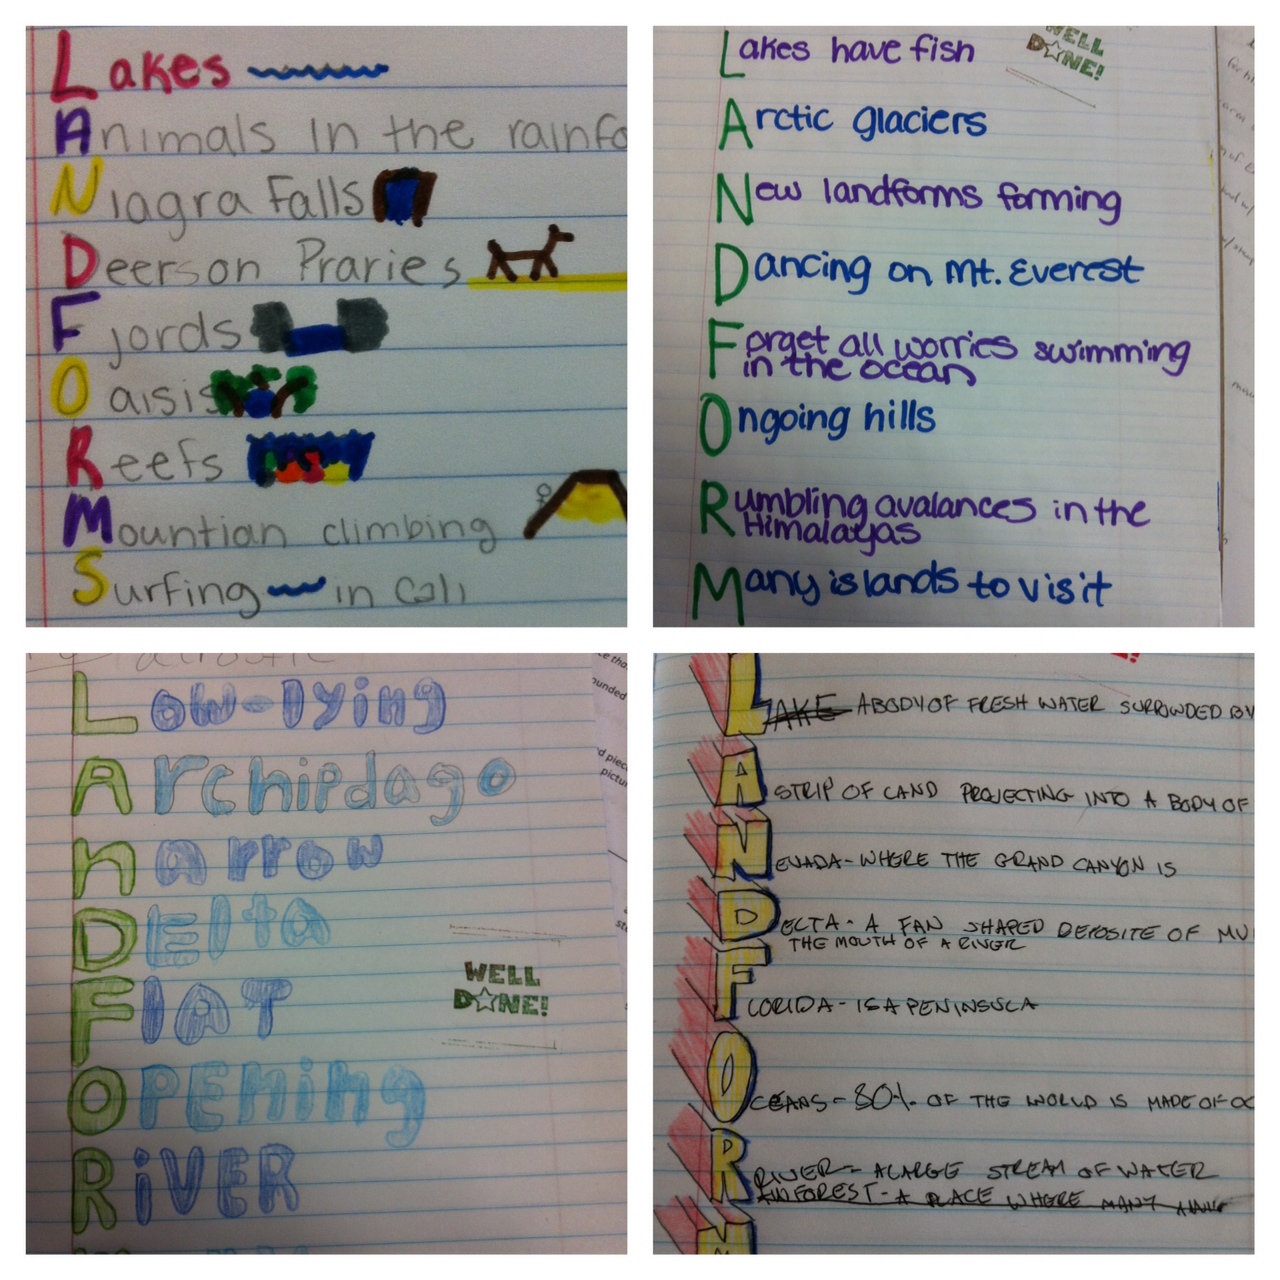 Lakes
Animals in the rainfo
Niagra Falls
Deerson Praries
Fjords
Oaisis
Reefs
Mountian climbing
Surfing in Cali
WELL DONE!
Lakes have fish
Arctic glaciers
New landforms forming
Dancing on Mt. Everest
Forget all worries swimming
in the ocean
Ongoing hills
Rumbling avalances in the
Himalayas
Many islands to visit
acrostic
Low-lying
Archipelago
narrow
DElta
FlAT
OPENing
RiVER
WELL
DONE!
LAKE A BODY OF FRESH WATER SURROWDED BY
A STRIP OF LAND PROJECTING INTO A BODY OF
NEVADA - WHERE THE GRAND CANYON IS
DELTA - A FAN SHAPED DEPOSITE OF MU
THE MOUTH OF A RIVER
FLORIDA - IS A PENINSULA
OCEANS - 80% OF THE WORLD IS MADE OF OC
RIVER - A LARGE STREAM OF WATER
RAINFOREST - A PLACE WHERE MANY
M